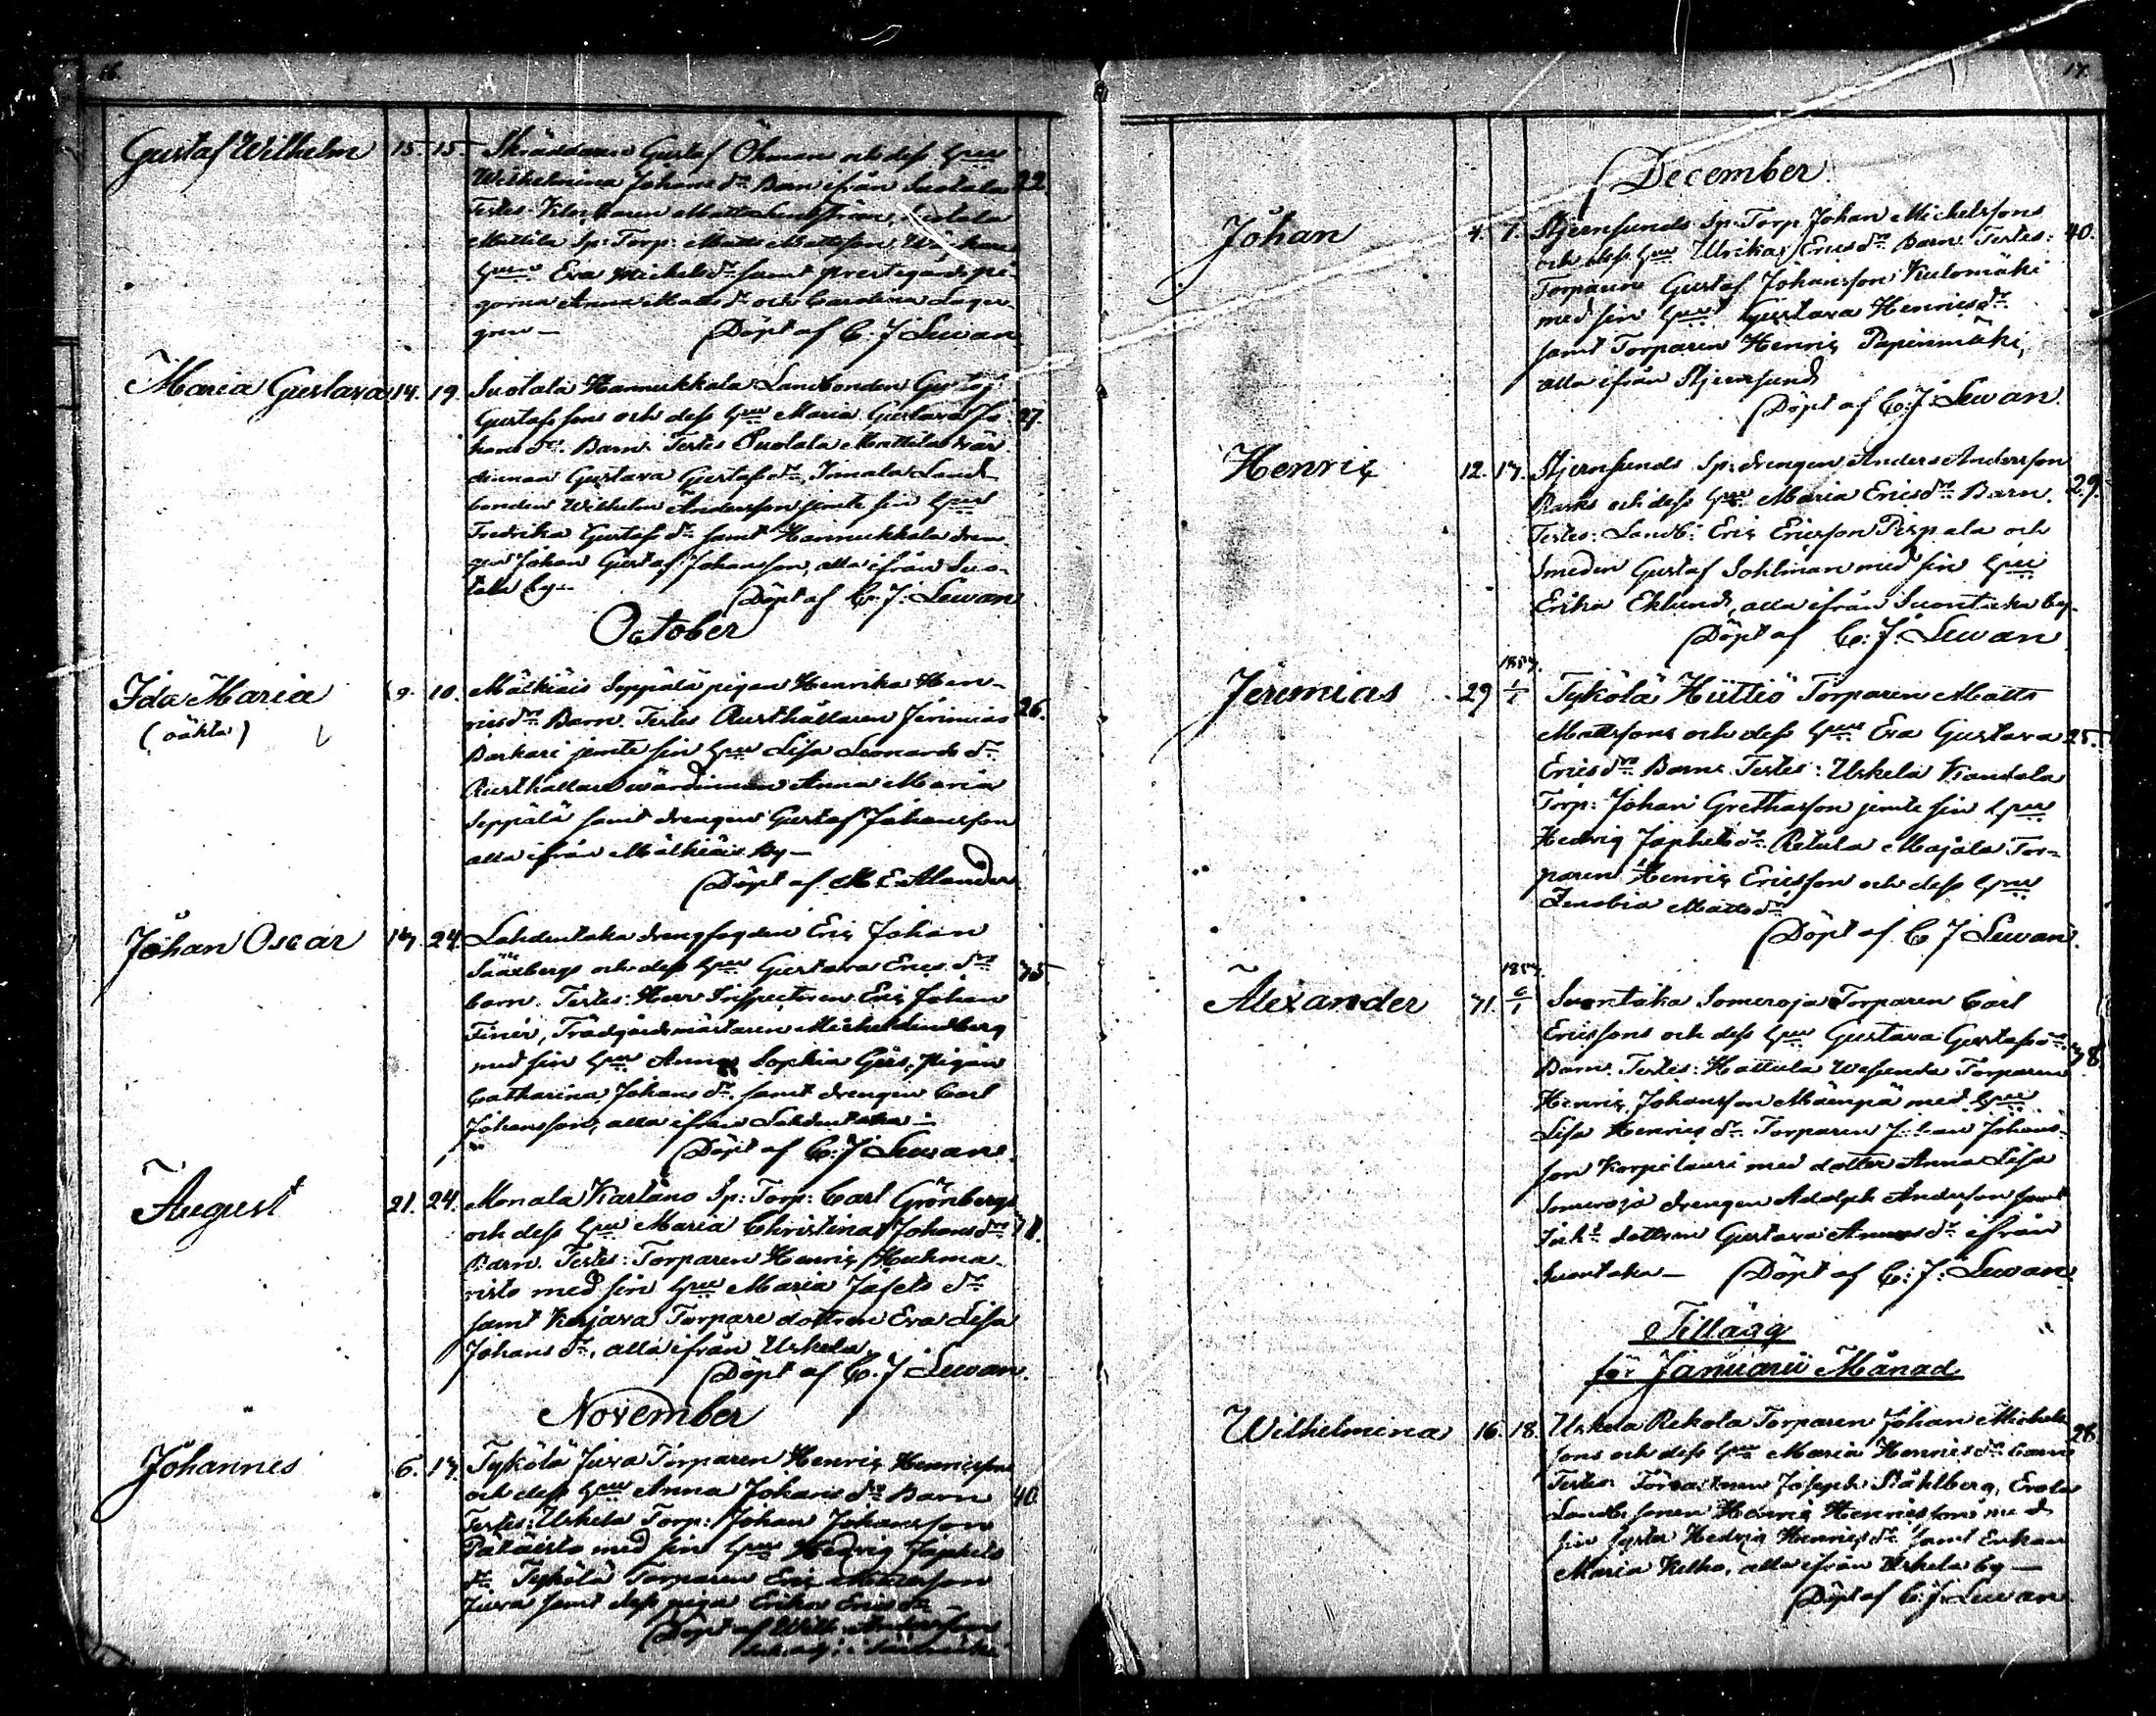 16.
Gustaf Wilhelm 15. 15. Skräddaren Gustaf Öhman och dess hu
Wilhelmina Johans dr Barn ifrån Suotala 22.
Testes: Matts Suotala
Mattila Sp: Torp: Matts Mattsson
hu Eva Michels dr samt prestegårds pi-
gorna Anna Matts dr och Carolina Lager-
gren — Döpt af C. J. Lewan
Maria Gustava 14. 19. Suotala Hannukkala Landbonden Gustaf
Gustafssons och dess hu Maria Gustava Jo- 27.
hans drs Barn. Testes Suotala Mattila vär-
dinnan Gustava Gustafs dr, Land-
bonden Wilhelm Andersson jemte sin hu
Fredrika Gustafs dr samt Hannukkala dren-
gen Johan Gustaf Johansson, alla ifrån Suo-
tala by — Döpt af C. J. Lewan
October
Ida Maria 9. 10. Mälkiäis Seppälä pigan Henrika Hen-
(oäkta)
rics drs Barn. Testes Rusthållaren Jerimias 26.
Barkari jemte sin hu Lisa Leonards dr
Rusthållare värdinnan Anna Maria
Seppälä samt drengen Gustaf Johansson
alla ifrån Mälkiäis By —
Döpt af M E Alander
Johan Oscar 17. 24. Lahdentaka drengfogden Eric Johan
Säaxbergs och dess hu Gustava Erics drs 35.
barn. Testes: Herr Inspectoren Eric Johan
Finér, Trädgårdsmästaren Michel Lindberg
med sin hu Anna Sophia Gers, pigan
Catharina Johans dr samt drengen Carl
Johansson, alla ifrån Lahdentaka —
Döpt af C. J. Lewan.
August 21. 24. Monala Kartano Sp: Torp: Carl Grönbergs
och dess hu Maria Christina Johans drs 31.
Barn. Testes: Torparen Henric Huhma-
risto med sin hu Maria Jafets dr
samt Torpare dottren Eva Lisa
Johans dr, alla ifrån Urhela.
Döpt af C. J Lewan.
November
Johannes 6. 17. Tykölä Juva Torparen Henric Henricssons
och dess hu Anna Johans drs Barn 40.
Testes: Urhela Torp: Johan Johansson
Pataisto med sin hu Hedvig Japhets
dr Tykölä Torparen Eric
Juva samt dess piga Erika Erics dr —
Döpt af Wilh. Andersson
17.
December
Johan 4. 7. Stjernsunds Sp: Torp Johan Michelssons
och dess hu Ulrika Erics drs Barn. Testes: 40.
Torparen Gustaf Johansson Kulomäki
med sin hu Gustava Henrics dr
samt Torparen Henric Papinmäki,
alla ifrån Stjernsund
Döpt af C. J. Lewan.
Henric 12. 17. Stjernsunds Sp: drengen Anders Andersson
Rasks och dess hu Maria Erics drs Barn. 29.
Testes: Landb: Eric Ericsson Pispala och
Smeden Gustaf Sohlman med sin hu
Erika Eklund, alla ifrån Suontaka by
Döpt af C. J. Lewan
1857.
Jeremias 29 1/1 Tykölä Hüttiö Torparen Matts
Mattssons och dess hu Eva Gustava 25.
Erics drs Barn. Testes: Urhela Kandola
Torp: Johan Grethasson jemte sin hu
Hedvig Japhets dr Retula Majala Tor-
paren Henric Ericsson och dess hu
Zenobia Matts dr
Döpt af C J Lewan.
1857.
Alexander 31. 6/1 Suontaka Someroja Torparen Carl
Ericssons och dess hu Gustava Gustafs drs 38
Barn. Testes: Hattula Wesunda Torparen
Henric Johansson Mäenpä med hu
Lisa Henrics dr Torparen Johan Johans-
son Korpilauri med dotter Anna Lisa
Someroja drengen Adolph Andersson samt
dottren Gustava dr ifrån
Suontaka — Döpt af C. J: Lewan.
Tillägg
för Januarii Månad
Wilhelmina 16. 18. Urhela Rekola Torparen Johan Michels-
sons och dess hu Maria Henrics drs barn 28
Testes: Joseph Ståhlberg, Erola
Landb. sonen Henric Henricsson med
sin syster Hedvig Henrics dr samt Enkan
Maria Kelho, alla ifrån Urhela by —
Döpt af C. J. Lewan